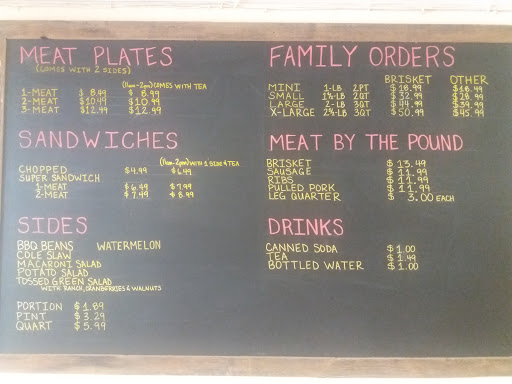 MEAT PLATES
(COMES WITH 2 SIDES)
(11am-2pm) COMES WITH TEA
1-MEAT $8.99 $8.99
2-MEAT $10.49 $10.99
3-MEAT $12.49 $12.99
SANDWICHES
(11am-2pm) WITH 1 SIDE & TEA
CHOPPED $4.99 $6.49
SUPER SANDWICH
1-MEAT $6.49 $7.99
2-MEAT $7.49 $8.99
SIDES
BBQ BEANS WATERMELON
COLE SLAW
MACARONI SALAD
POTATO SALAD
TOSSED GREEN SALAD
WITH RANCH, CRANBERRIES & WALNUTS
PORTION $1.89
PINT $3.29
QUART $5.99
FAMILY ORDERS
BRISKET OTHER
MINI 1-LB 2PT $18.99 $18.49
SMALL 1½-LB 2QT $32.99 $28.99
LARGE 2-LB 3QT $44.99 $39.99
X-LARGE 2½-LB 3QT $50.99 $45.99
MEAT BY THE POUND
BRISKET $13.49
SAUSAGE $11.99
RIBS $11.99
PULLED PORK $11.99
LEG QUARTER $3.00 EACH
DRINKS
CANNED SODA $1.00
TEA $1.49
BOTTLED WATER $1.00